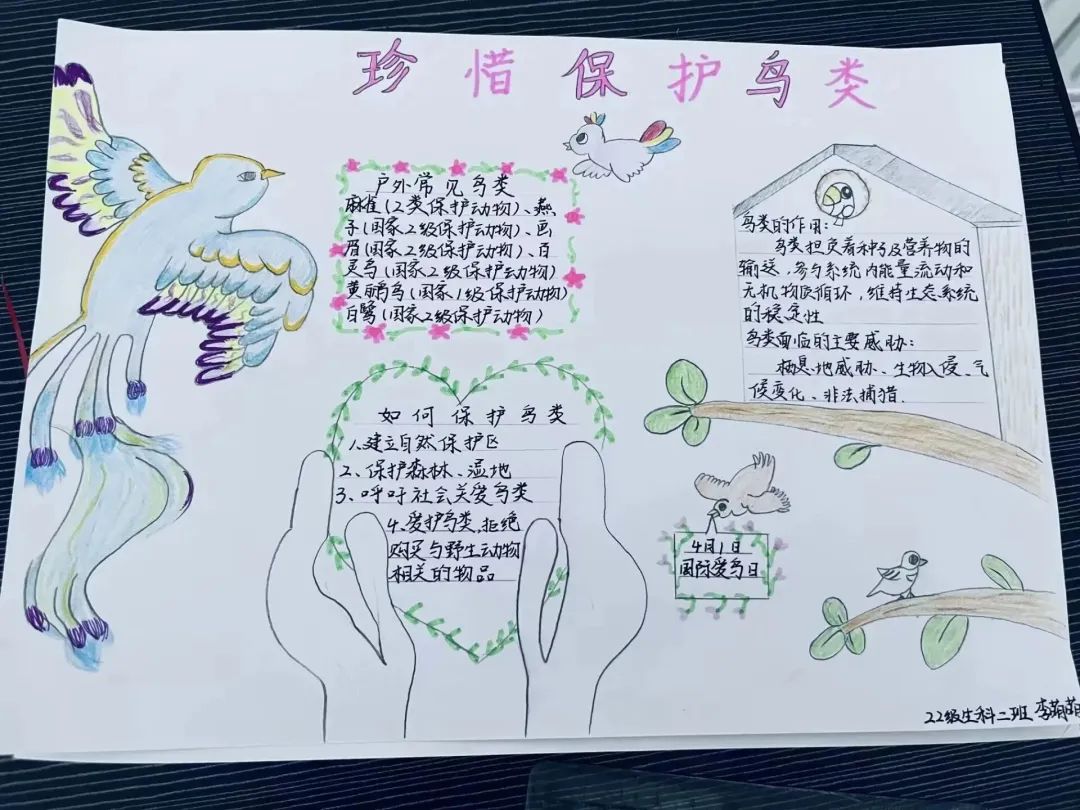 珍惜保护鸟类
户外常见鸟类
麻雀(2类保护动物)、燕
子(国家2级保护动物)、画
眉(国家2级保护动物)、百
灵鸟(国家2级保护动物)
黄鹂鸟(国家1级保护动物)
白鹭(国家2级保护动物)
鸟类的作用:
鸟类担负着种子及营养物的
输送,参与系统内能量流动和
无机物质循环,维持生态系统
的稳定性
鸟类面临的主要威胁:
栖息地威胁、生物入侵、气
候变化、非法捕猎.
如何保护鸟类
1、建立自然保护区
2、保护森林、湿地
3、呼吁社会关爱鸟类
4、爱护鸟类,拒绝
购买与野生动物
相关的物品
4月1日
国际爱鸟日
22级生科二班 李萌萌